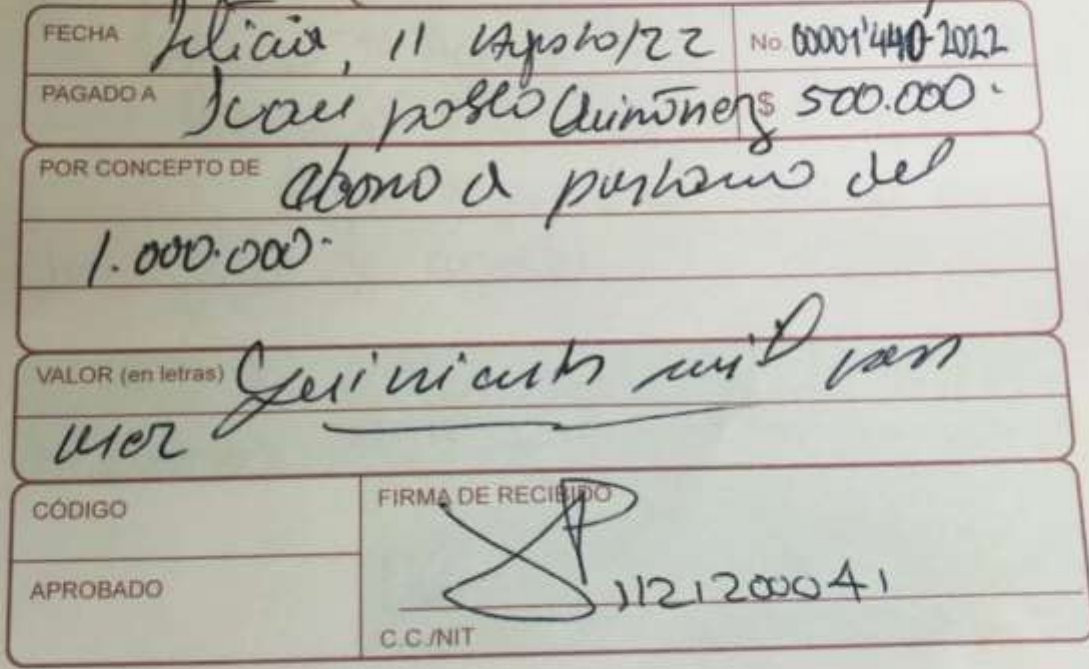 FECHA Leticia, 11 Agosto/22 No. 00001'440-2022
PAGADO A Juan pablo Quiñonez $ 500.000.
POR CONCEPTO DE abono a prestamo del
1.000.000.
VALOR (en letras) Quinientos mil pesos
mcr
CÓDIGO
FIRMA DE RECIBIDO
1121200041
APROBADO
C.C./NIT